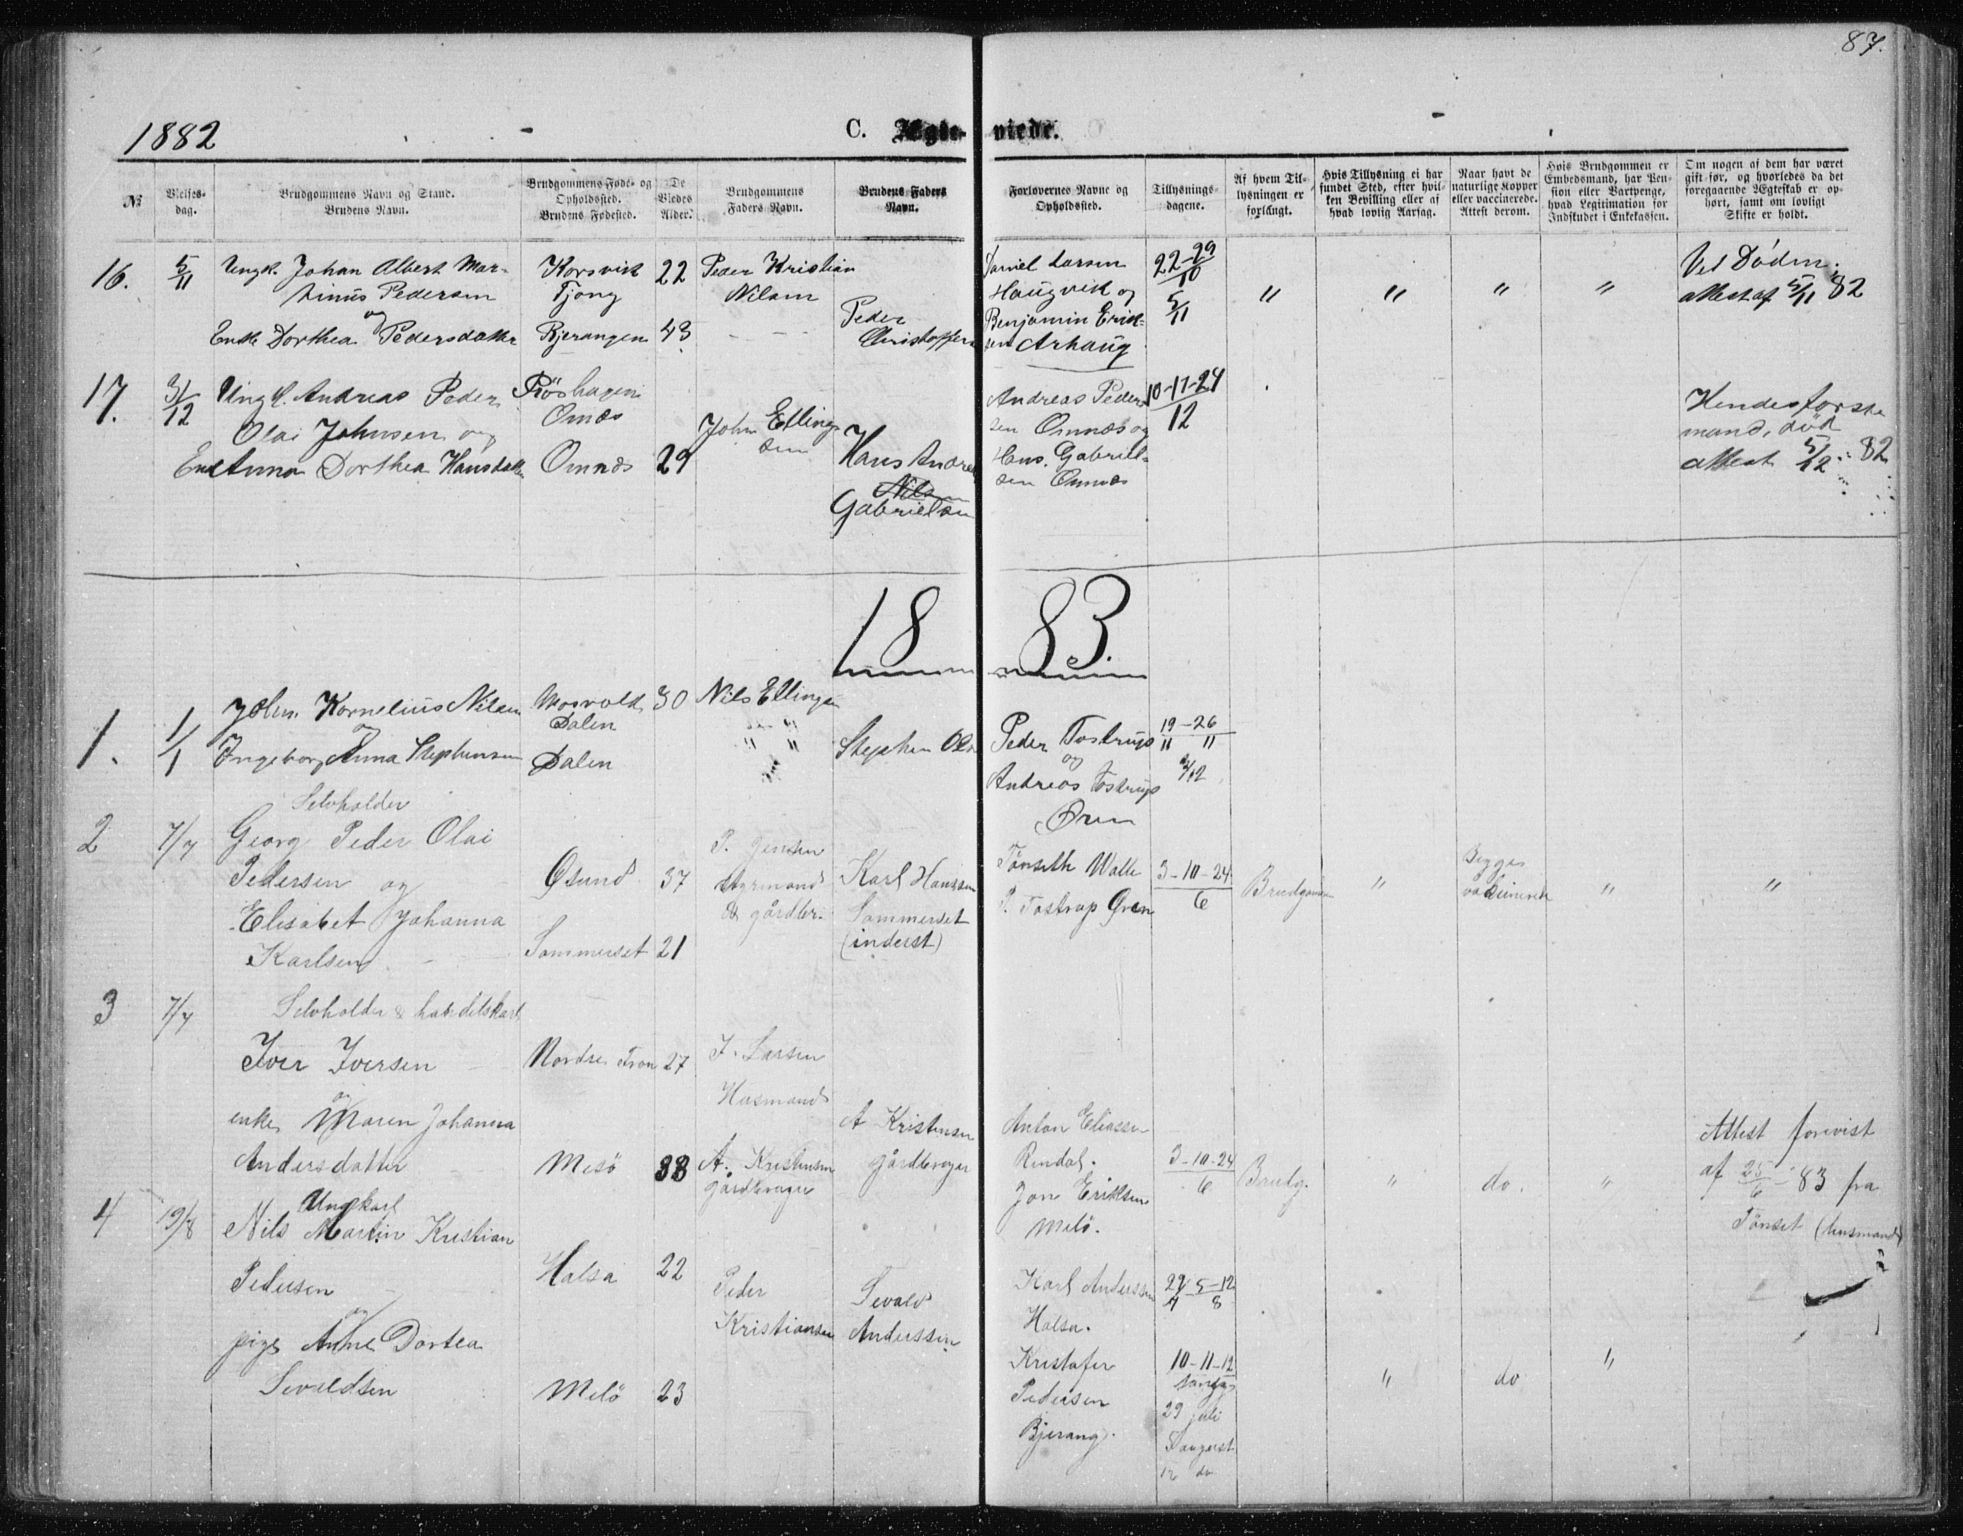 87.
1882
C. Ægte-
viede.
№
Vielses-
dag.
Brudgommens Navn og Stand.
Brudens Navn.
Brudgommens Føde- og
Opholdssted.
Brudens Fødested.
De
Viedes
Alder.
Brudgommens
Faders Navn.
Brudens Faders
Navn.
Forlovernes Navne og
Opholdssted.
Tillysnings-
dagene.
Af hvem Til-
lysningen er
forlangt.
Hvis Tillysning ei har
fundet Sted, efter hvil-
ken Bevilling eller af
hvad lovlig Aarsag.
Naar havt de
naturlige Kopper
eller vaccinerede.
Attest derom.
Hvis Brudgommen er
Embedsmand, har Pen-
sion eller Vartpenge,
hvad Legitimation for
Indskudet i Enkekassen.
Om nogen af dem har været
gift før, og hvorledes da det
foregaaende Ægteskab er op-
hørt, samt om lovligt
Skifte er holdt.
16.
5/11
Ungk. Johan Albert Mar-
tinus Pedersen
og
Enke Dorthea Pedersdatter
Korsvik
Tjong
Bjerangen
22
43
Peder Kristian
Nilsen
Peder
Christoffersen
Daniel Larsen
Haugvik og
Benjamin Erik-
sen Arhaug
22-29
10
5/11
" " " "
Ved Døden.
attest af 5/11 82
17.
31/12
Ungk. Andreas Peder
Olai Johnsen og
Enke Anna Dorthea Hansdatter
Röshagen
Omnæs
Omnæs
29
John Elling-
sen
Hans Andreas
Nilsen
Gabrielsen
Andreas Peder-
sen Omnæs og
Hans Gabriel-
sen Omnæs
10-17-24
12
Hendes første
mand, død
attest 5/12 82
18 83.
1.
1/1
Johan Kornelius Nilsen
og
Ingeborg Anna Stephensen
Mosvold
Dalen
Dalen
30
Nils Ellingsen
" "
Stephen Olsen
Peder Tostrup
og
Andreas Tostrup
Øren
19-26
11 11
2
7/7
Selvholder
Georg Peder Olai
Pedersen og
Elisabet Johanna
Karlsen
Øsund
Sommerset
37
21
P. Jensen
styrmand
& gårdbr.
Karl Hanssen
Sommerset
(inderst)
Tönseth Walle
P. Tostrup Øren
3-10-24
6
Brudgommen
"
Begge
vaksineret
" "
3
7/7
Selvholder & handelskarl
Iver Iversen
og
enke Maren Johanna
Andersdatter
Nordre Fron
Melö
27
38
I. Larsen
Husmand
A. Kristensen
gårdbruger
A Kristensen
gårdbruger
Anton Eliassen
Rendal.
Jon Eriksen
Melö.
3-10-24
6
Brudg.
"
do.
"
Attest forevist
af 25/6 - 83 fra
Tönset (husmand)
4
19/8
Ungkarl
Nils Martin Kristian
Pedersen
og
pige Anne Dortea
Sevaldsen
Halsa
Melö
22
23
Peder
Kristiansen
Sevald
Anderssen
Karl Anderssen
Halsa.
Kristofer
Pedersen
Bjerang.
29 5-12
7 8
10-11-12
29 juli
12 do
"
do
"